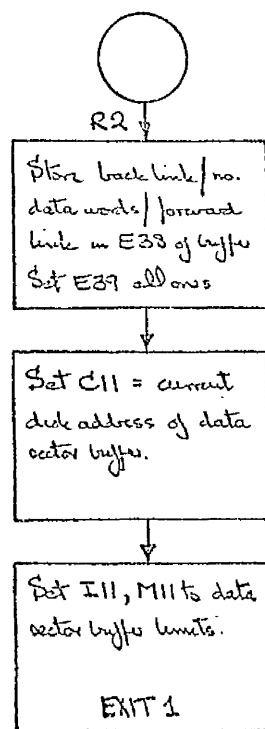 R2
Store back link/no.
data words/forward
link in E38 of buffer
Set E39 all ones
Set C11 = current
disk address of data
sector buffer.
Set I11, M11 to data
sector buffer limits.
EXIT 1